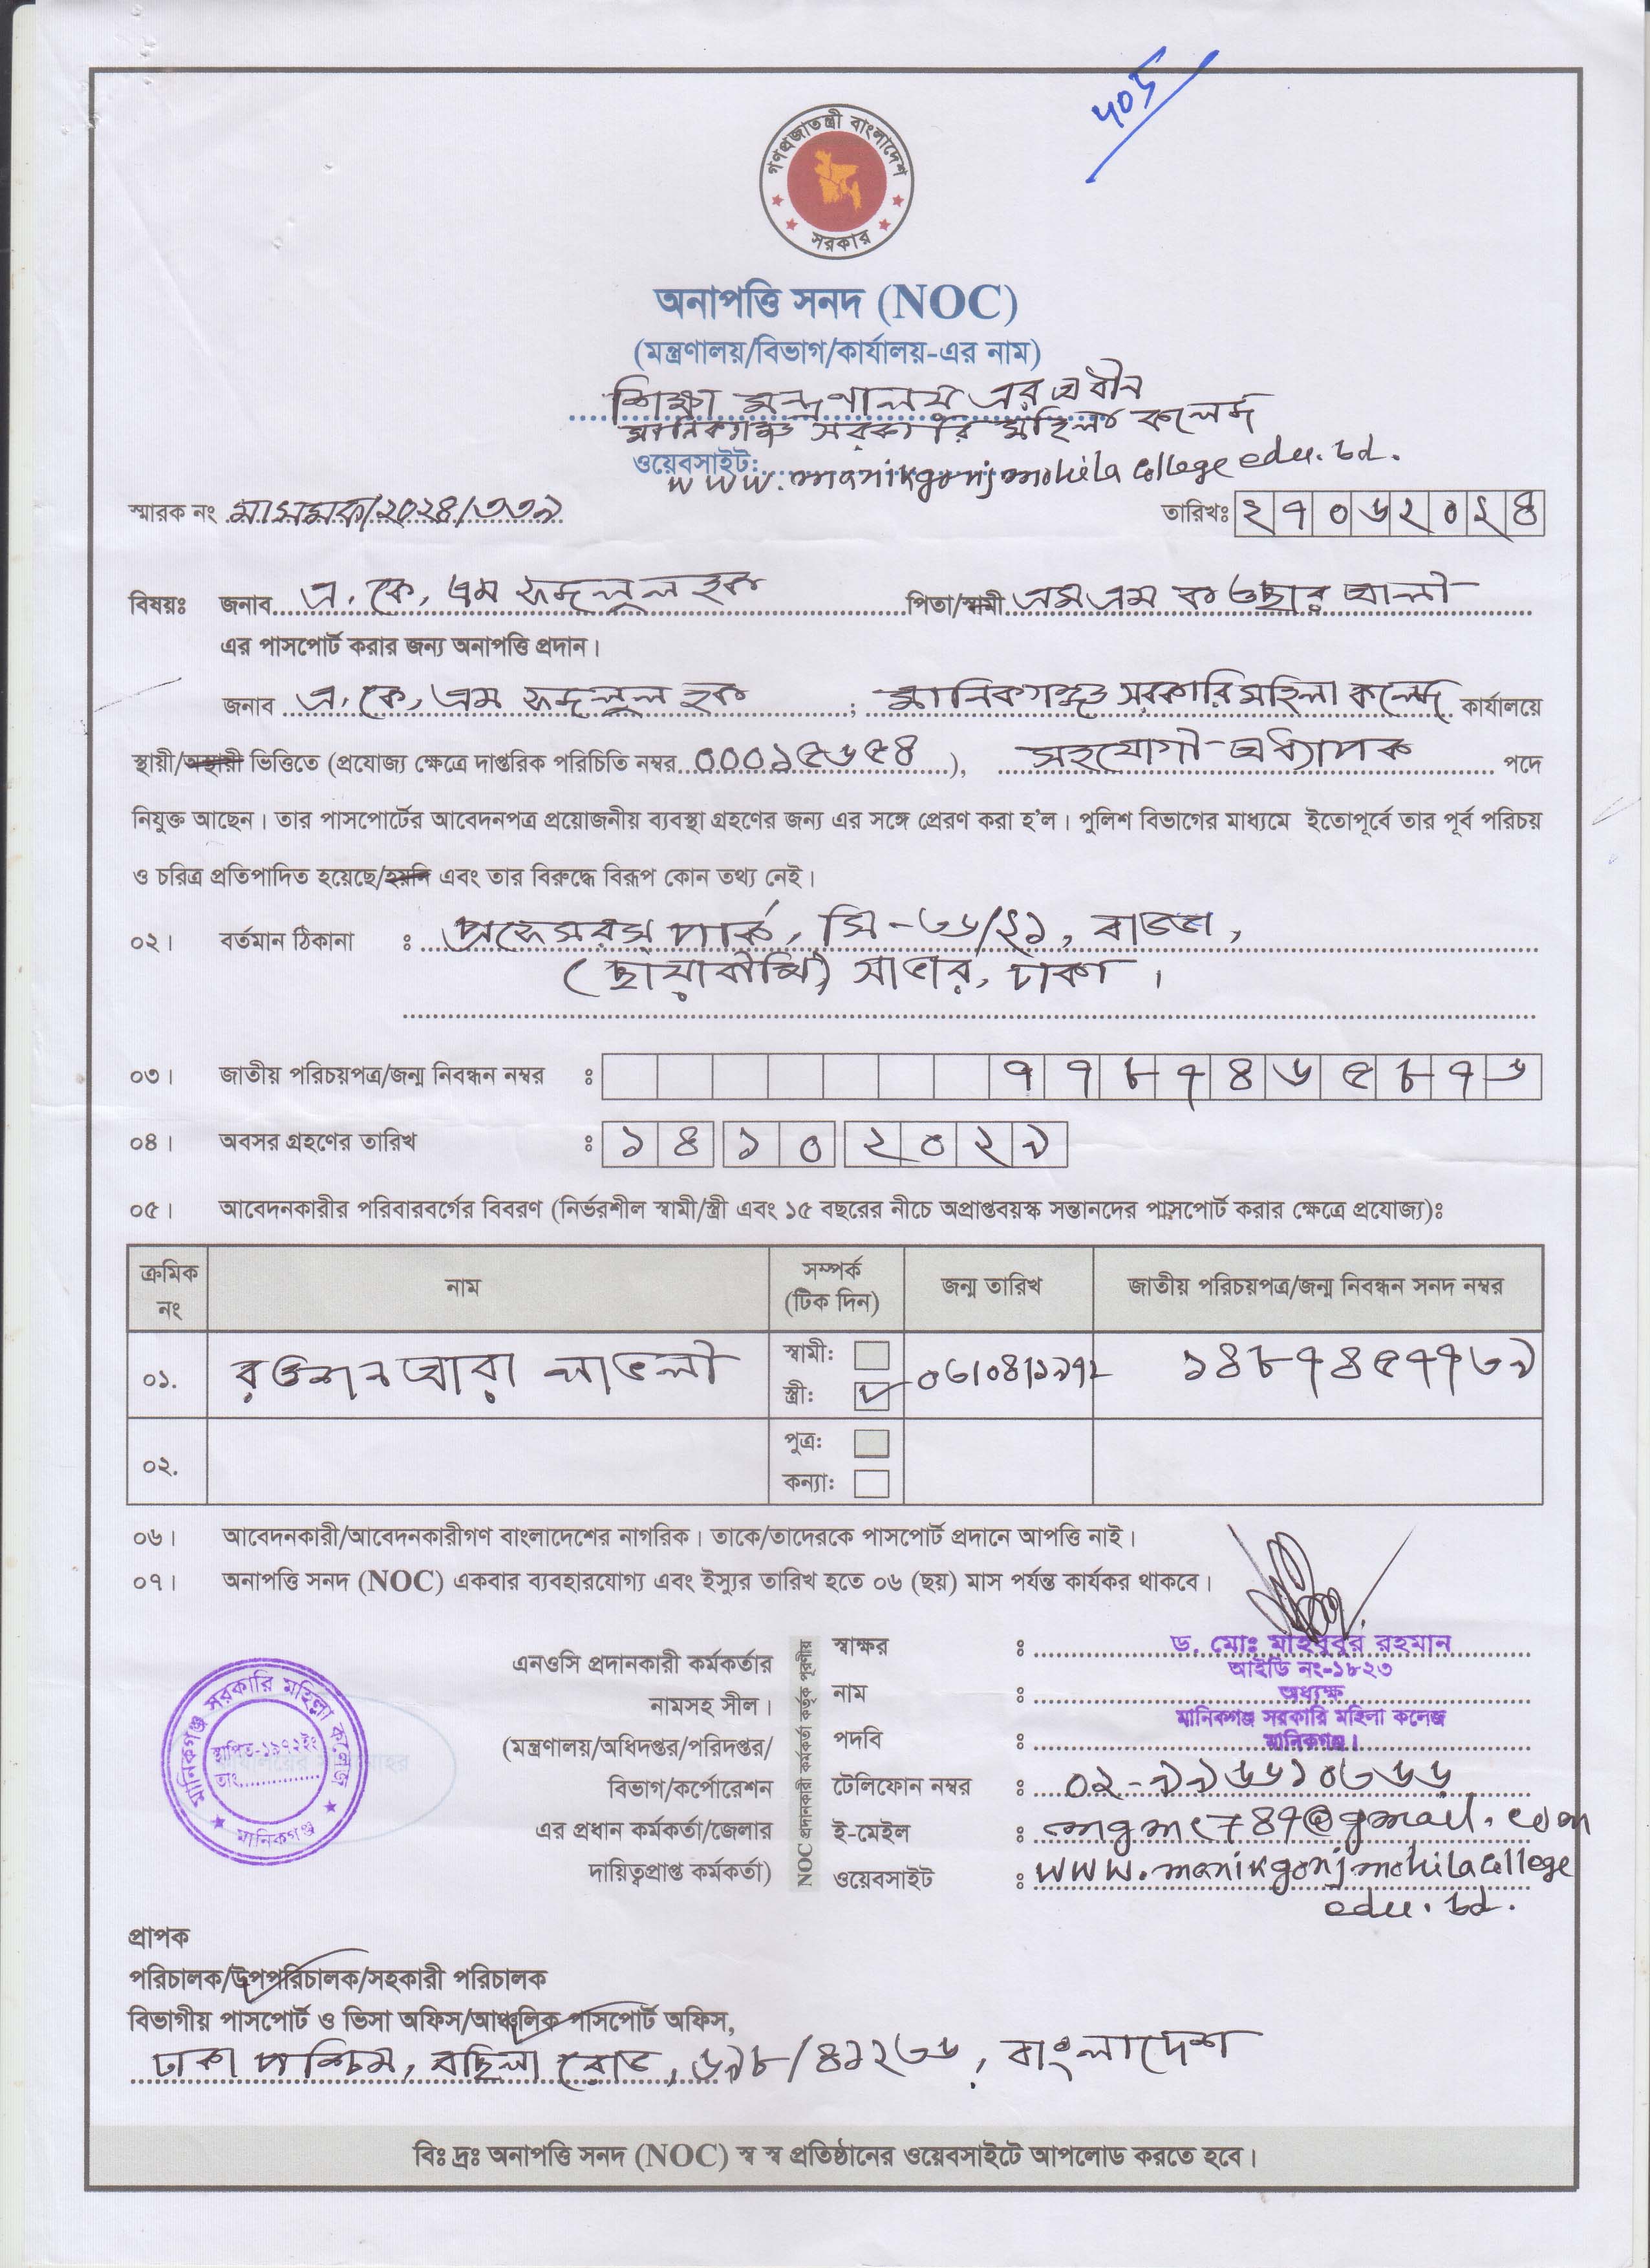 ৭০১
গণপ্রজাতন্ত্রী বাংলাদেশ
সরকার
অনাপত্তি সনদ (NOC)
(মন্ত্রণালয়/বিভাগ/কার্যালয়-এর নাম)
শিক্ষা মন্ত্রণালয় এর অধীন
মানিকগঞ্জ সরকারি মহিলা কলেজ
ওয়েবসাইট: www.manikgonjmohilacollege edu.bd.
স্মারক নং মাসমক/২০২৪/৩৩৯ তারিখঃ ২৭০৬২০২৪
বিষয়ঃ জনাব এ. কে, এম ফজলুল হক পিতা/স্বামী এম এম কওছার আলী
এর পাসপোর্ট করার জন্য অনাপত্তি প্রদান।
জনাব এ. কে, এম ফজলুল হক ; মানিকগঞ্জ সরকারি মহিলা কলেজ কার্যালয়ে
স্থায়ী/অস্থায়ী ভিত্তিতে (প্রযোজ্য ক্ষেত্রে দাপ্তরিক পরিচিতি নম্বর 000১৫৬৫৪), সহযোগী অধ্যাপক পদে
নিযুক্ত আছেন। তার পাসপোর্টের আবেদনপত্র প্রয়োজনীয় ব্যবস্থা গ্রহণের জন্য এর সঙ্গে প্রেরণ করা হ'ল। পুলিশ বিভাগের মাধ্যমে ইতোপূর্বে তার পূর্ব পরিচয়
ও চরিত্র প্রতিপাদিত হয়েছে/হয়নি এবং তার বিরুদ্ধে বিরূপ কোন তথ্য নেই।
০২। বর্তমান ঠিকানা : প্রফেসরস পার্ক, সি-৩৬/২১, বাড্ডা,
(ছায়াবীথি) সাভার, ঢাকা।
০৩। জাতীয় পরিচয়পত্র/জন্ম নিবন্ধন নম্বর : ৭৭৮৭৪৬৫৮৭৬
০৪। অবসর গ্রহণের তারিখ : ১৪১০২০২৯
০৫। আবেদনকারীর পরিবারবর্গের বিবরণ (নির্ভরশীল স্বামী/স্ত্রী এবং ১৫ বছরের নীচে অপ্রাপ্তবয়স্ক সন্তানদের পাসপোর্ট করার ক্ষেত্রে প্রযোজ্য)ঃ
ক্রমিক নং নাম সম্পর্ক (টিক দিন) জন্ম তারিখ জাতীয় পরিচয়পত্র/জন্ম নিবন্ধন সনদ নম্বর
০১. রওশন আরা লাভলী স্বামী: স্ত্রী: ✓ ০৬/০৪/১৯৭২ ১৪৮৭৪৫৭৭৩৯
০২. পুত্র: কন্যা:
০৬। আবেদনকারী/আবেদনকারীগণ বাংলাদেশের নাগরিক। তাকে/তাদেরকে পাসপোর্ট প্রদানে আপত্তি নাই।
০৭। অনাপত্তি সনদ (NOC) একবার ব্যবহারযোগ্য এবং ইস্যুর তারিখ হতে ০৬ (ছয়) মাস পর্যন্ত কার্যকর থাকবে।
এনওসি প্রদানকারী কর্মকর্তার
নামসহ সীল।
(মন্ত্রণালয়/অধিদপ্তর/পরিদপ্তর/
বিভাগ/কর্পোরেশন
এর প্রধান কর্মকর্তা/জেলার
দায়িত্বপ্রাপ্ত কর্মকর্তা)
NOC প্রদানকারী কর্মকর্তা কর্তৃক পূরণীয়
স্বাক্ষর : ড. মোঃ মাহবুবুর রহমান
আইডি নং-১৮২৩
নাম : অধ্যক্ষ
মানিকগঞ্জ সরকারি মহিলা কলেজ
পদবি : মানিকগঞ্জ।
টেলিফোন নম্বর : ০২-৯৯৬৬১০৩৬৬
ই-মেইল : mgmc789@gmail.com
ওয়েবসাইট : www.manikgonjmohilacollege
edu.bd.
মানিকগঞ্জ সরকারি মহিলা কলেজ
স্থাপিত-১৯৭২ইং
তাং
মানিকগঞ্জ
প্রাপক
পরিচালক/উপপরিচালক/সহকারী পরিচালক
বিভাগীয় পাসপোর্ট ও ভিসা অফিস/আঞ্চলিক পাসপোর্ট অফিস,
ঢাকা পশ্চিম, বছিলা রোড, ৬৯৮/৪১২৩৬, বাংলাদেশ
বিঃ দ্রঃ অনাপত্তি সনদ (NOC) স্ব স্ব প্রতিষ্ঠানের ওয়েবসাইটে আপলোড করতে হবে।